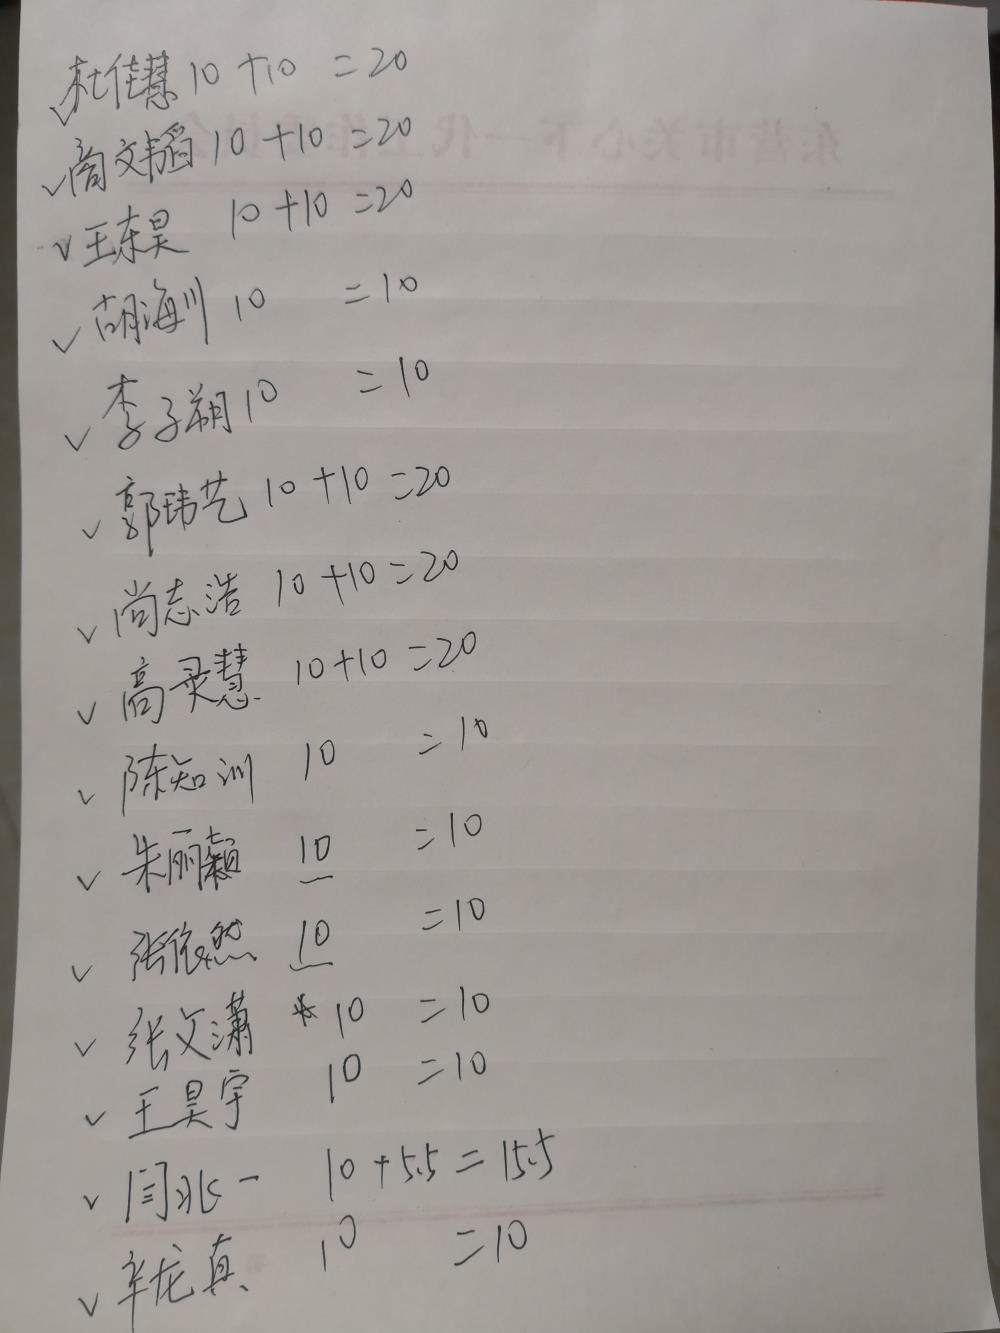 ✓杜佳慧 10+10 =20
✓商文韬 10+10 =20
✓王东昊 10+10 =20
✓胡海川 10 =10
✓李子朔 10 =10
✓郭玮艺 10+10 =20
✓尚志浩 10+10=20
✓高灵慧 10+10 =20
✓陈知训 10 =10
✓朱丽颖 10 =10
✓张依然 10 =10
✓张文潇 10 =10
✓王昊宇 10 =10
✓闫兆一 10+5.5=15.5
✓辛龙真 10 =10